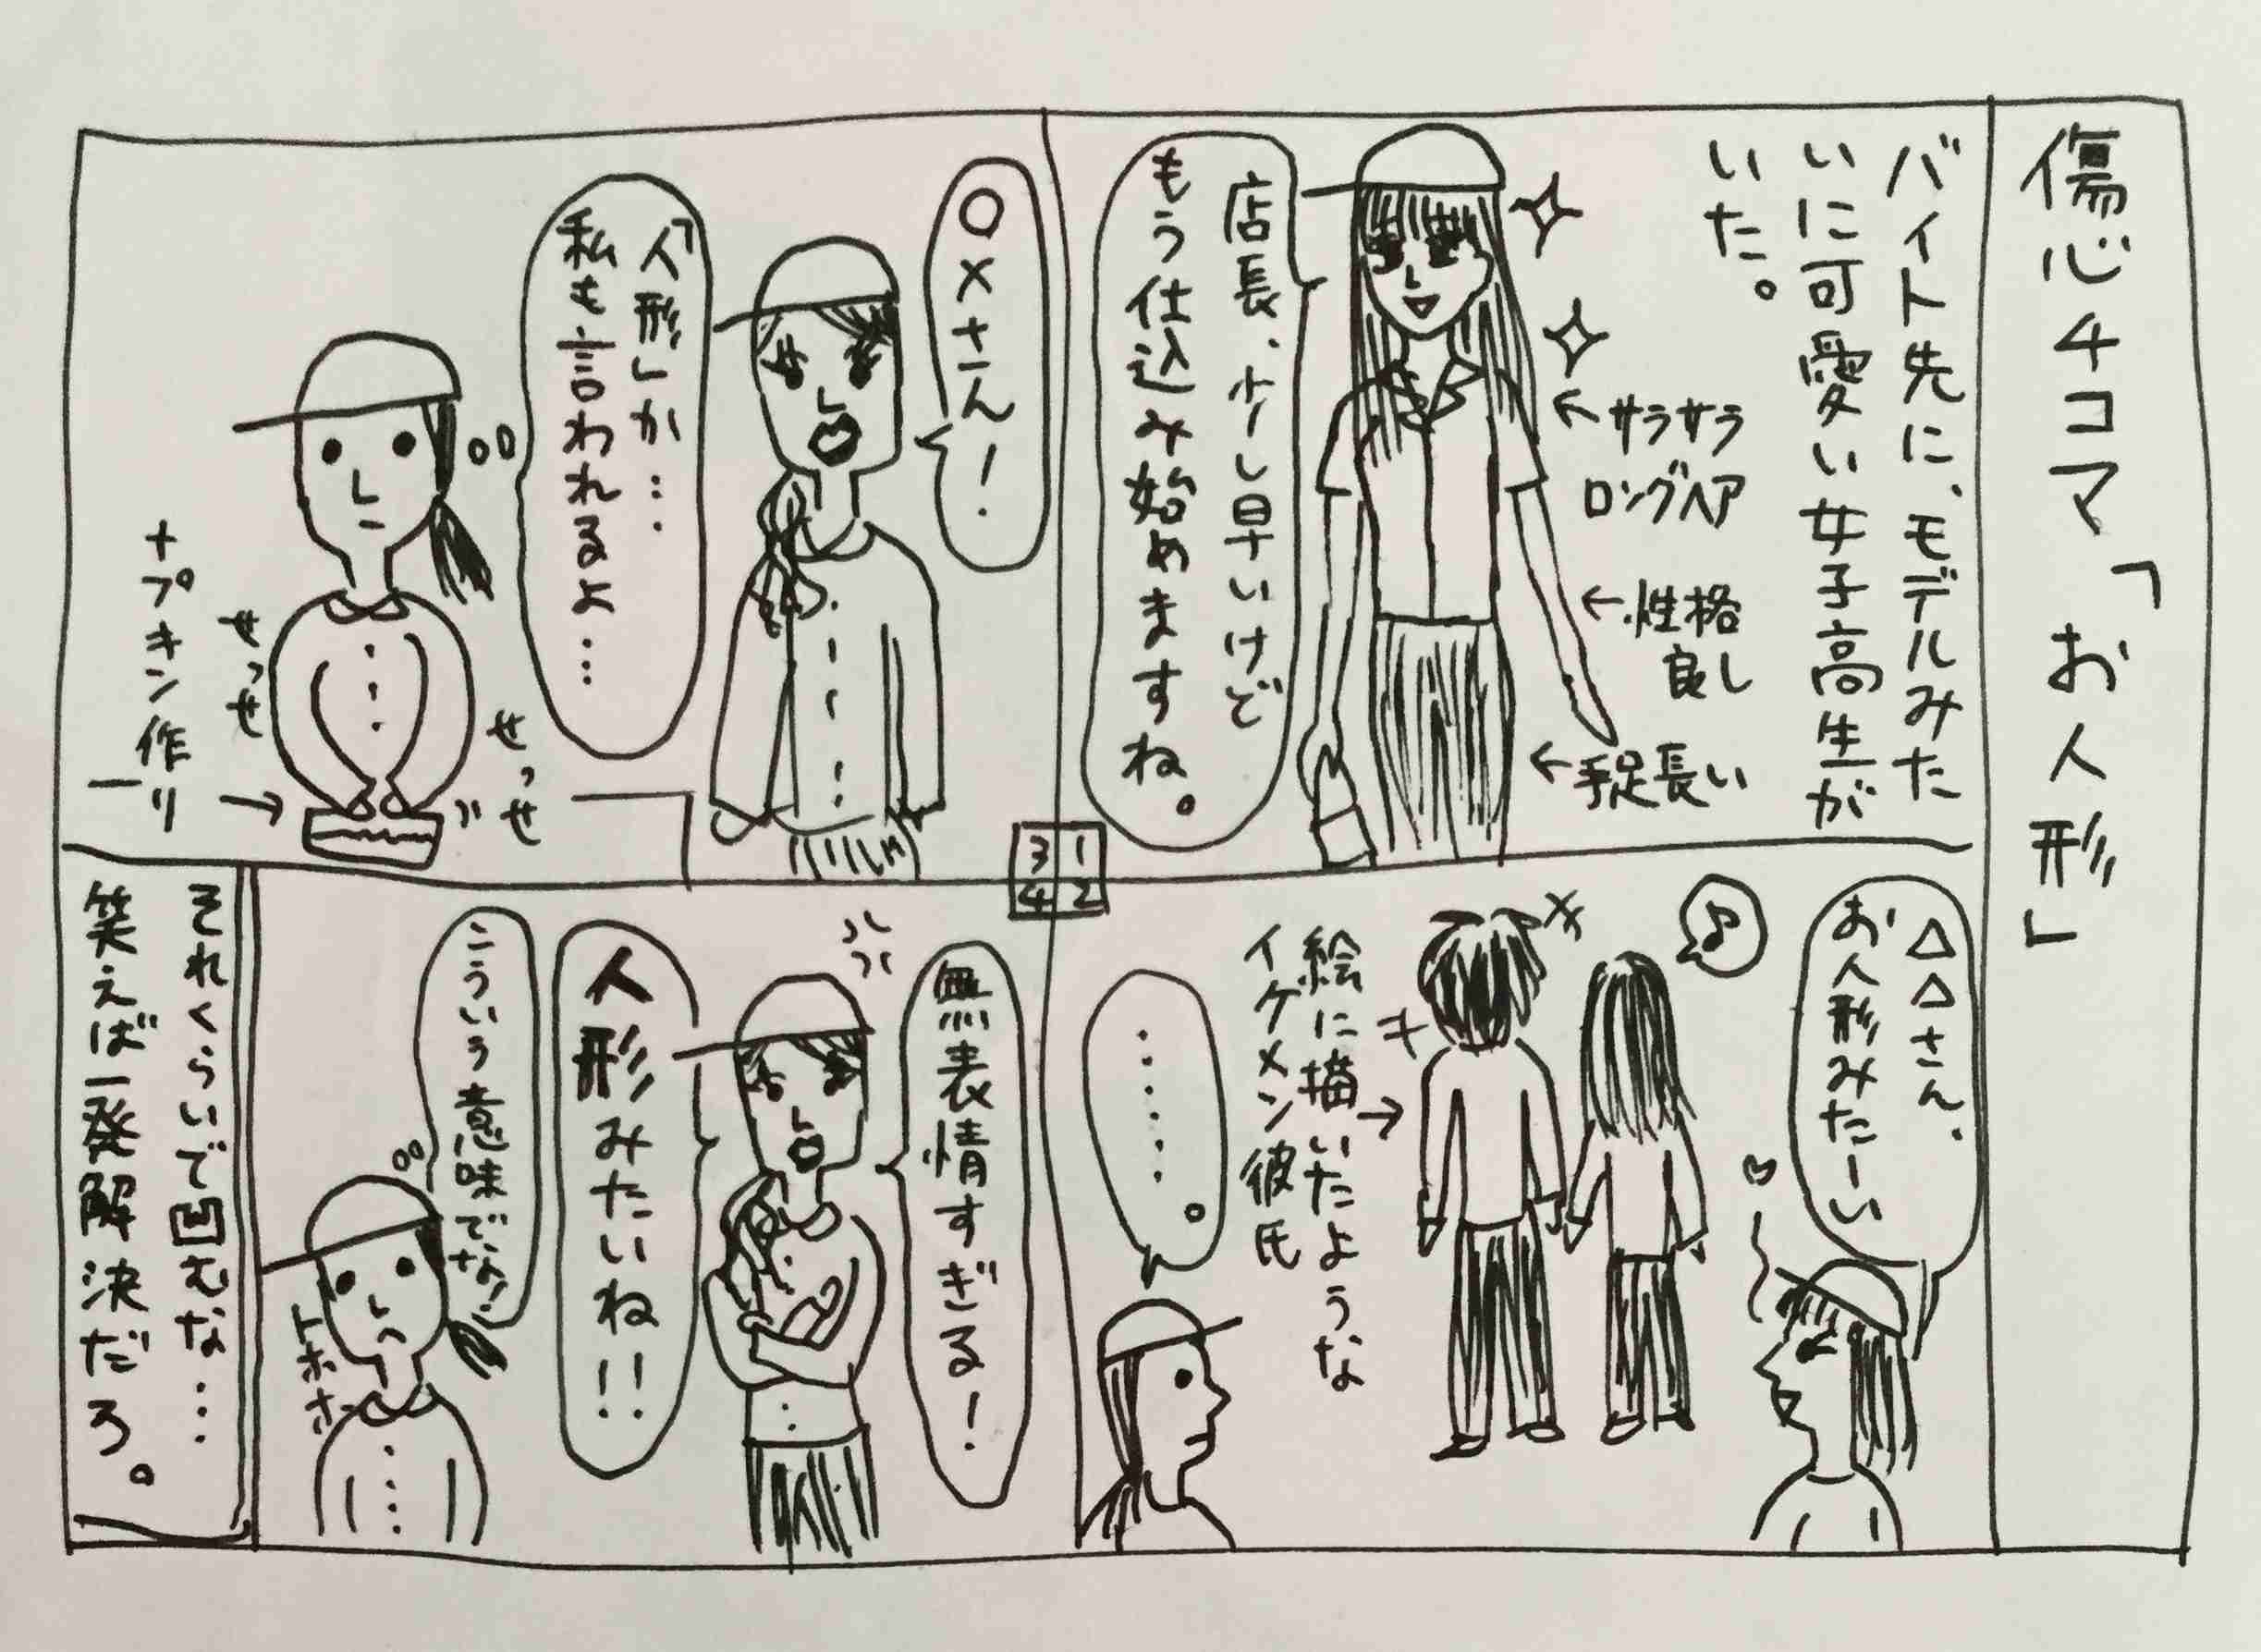 傷心4コマ「お人形」
バイト先に、モデルみた
いに可愛い女子高生が
いた。
←サラサラ
ロングヘア
←性格
良し
←手足長い
店長、少し早いけど
もう仕込み始めますね。
1
2
3
4
△△さん、
お人形みたーい
♪
キ
キ
絵に描いたような
イケメン彼氏
→
・・・・・。
〇×さん!
「人形」か…
私も言われるよ…
せっせ
せっせ
ナプキン作り
→
無表情すぎる!
人形みたいね!!
こういう意味でな!
トホホ
それくらいで凹むな…
笑えば一発解決だろ。